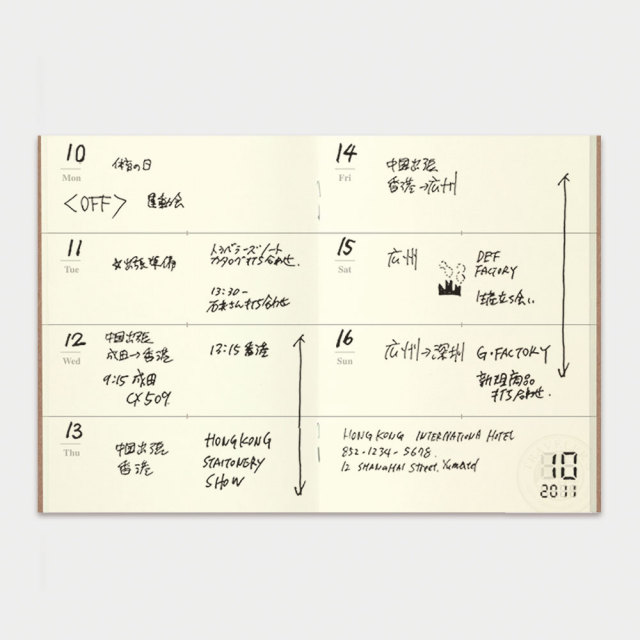 10
Mon
体育の日
<OFF> 運動会
11
Tue
出張準備
トラベラーズノート
カタログ打ち合わせ.
13:30-
打ち合わせ
12
Wed
中国出張
成田→香港
9:15 成田
CX509
13:15 香港
13
Thu
中国出張
香港
HONGKONG
STAITONERY
SHOW
14
Fri
中国出張
香港→広州
15
Sat
広州
DEF
FACTORY
立ち会い
16
Sun
広州→深圳
G.FACTORY
新規商品
打ち合わせ.
HONG KONG INTERNATIONA HOTEL
852-1234-5678.
12 SHANGHAI Street.
10
2011